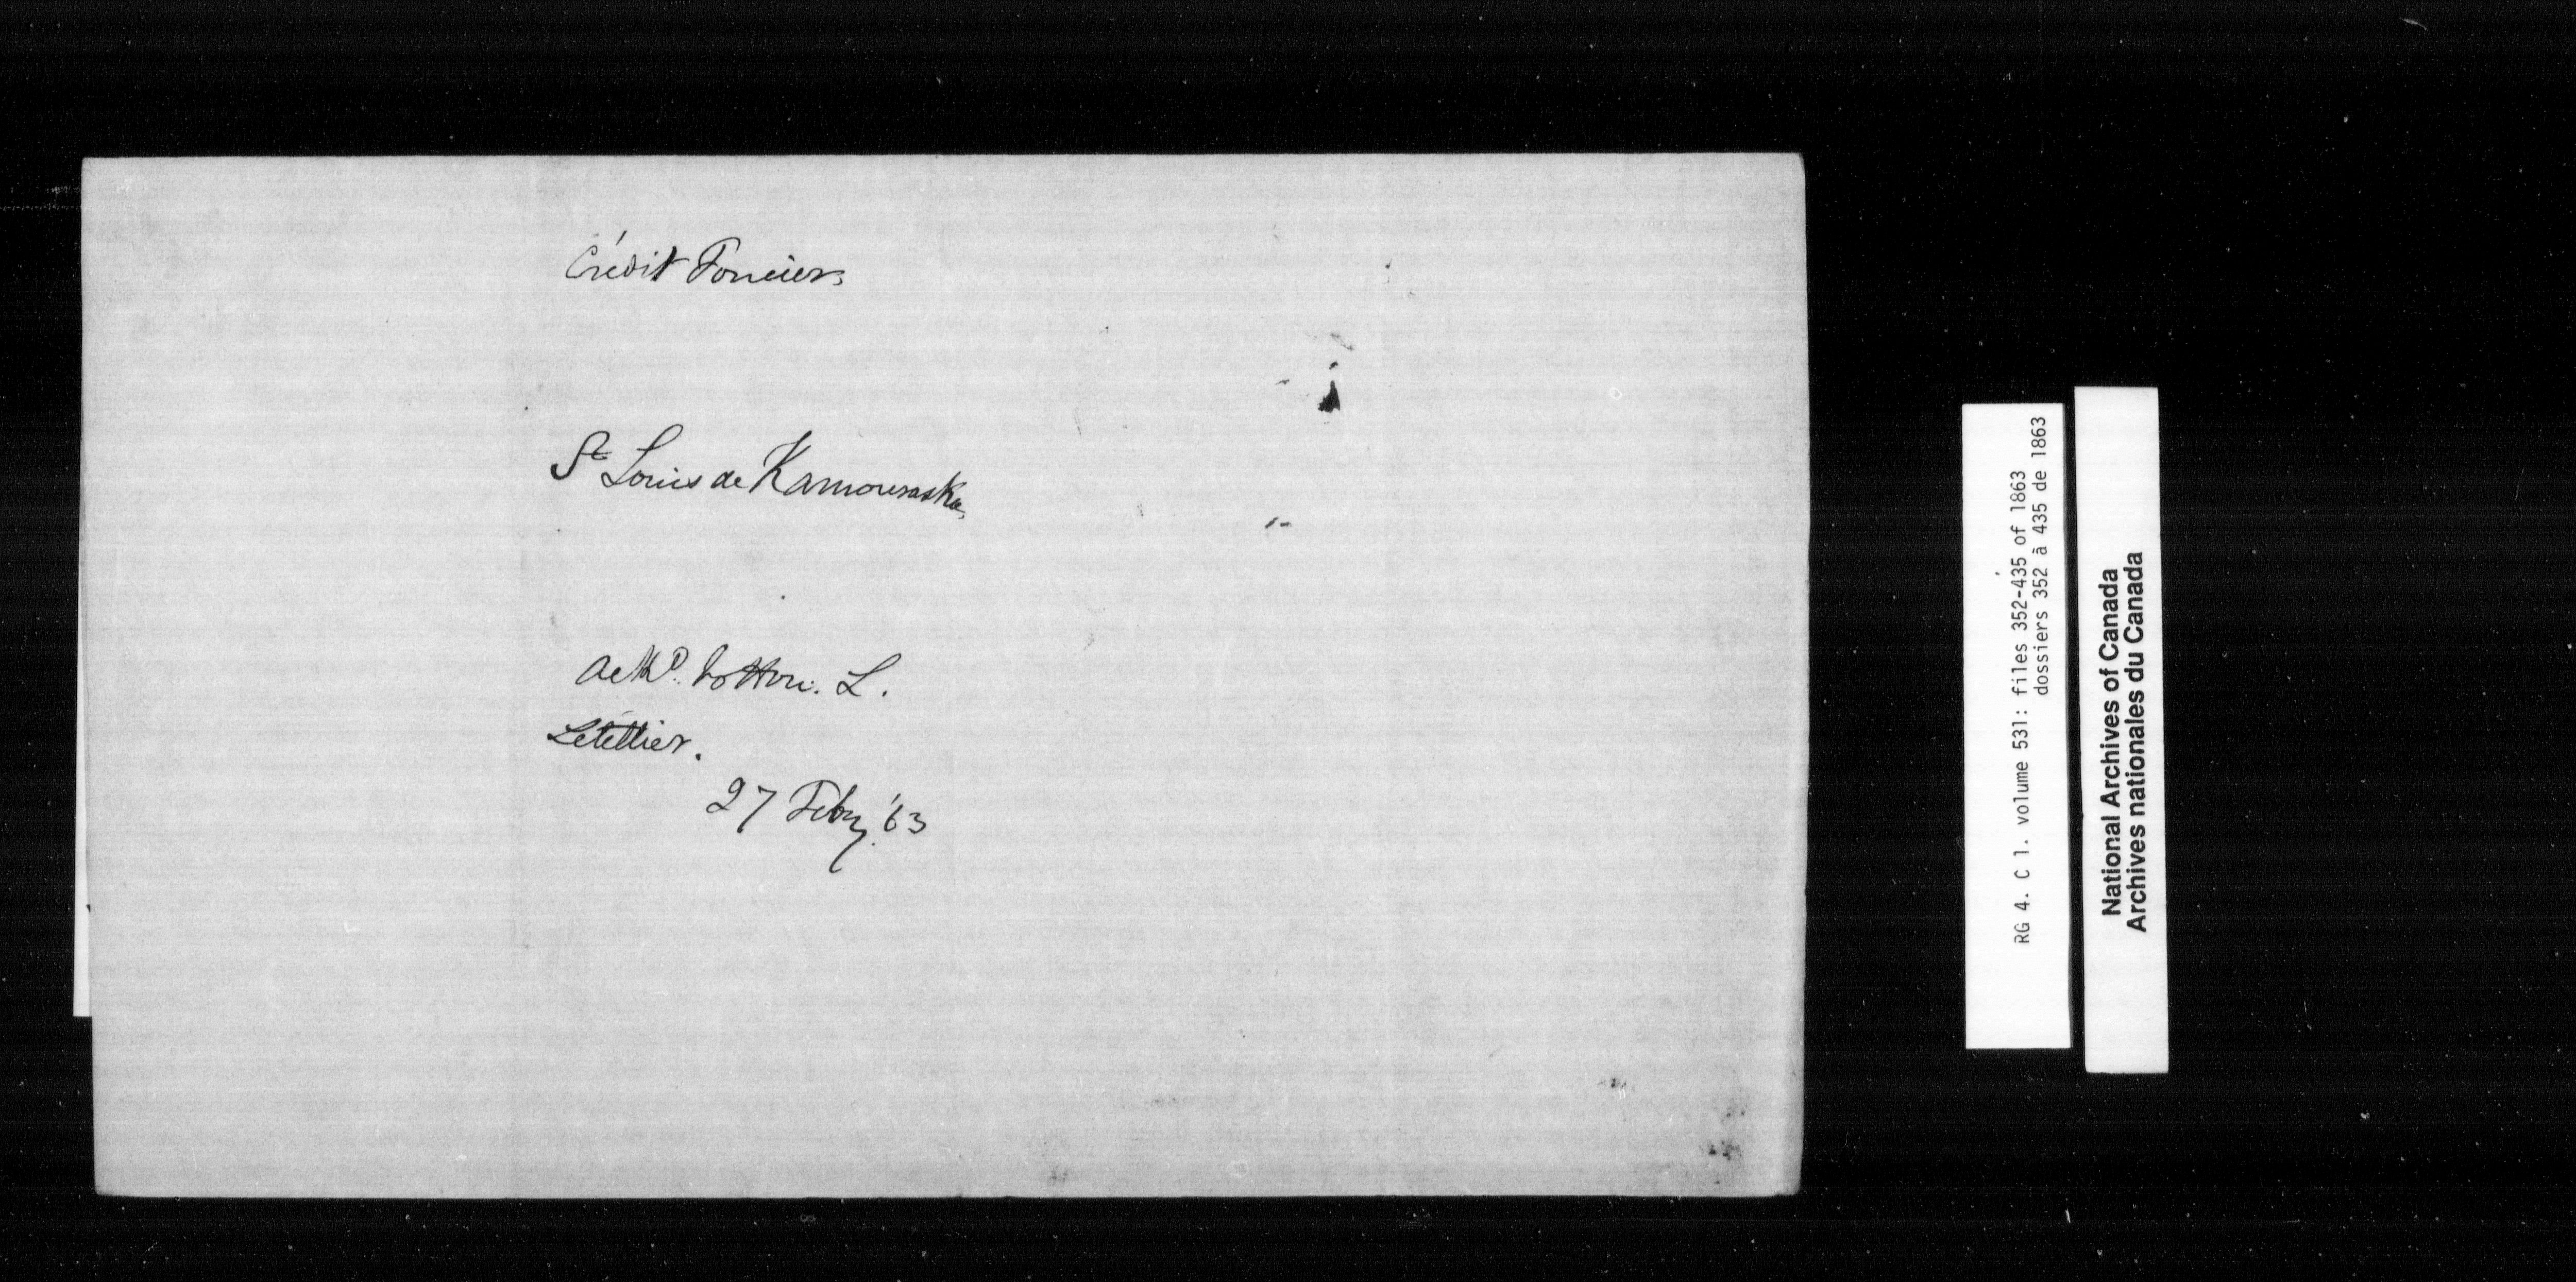 Crédit Foncier
St Louis de Kamouraska
Ackd. to Hon. L.
Letellier.
27 Feby. '63
RG 4. C 1. volume 531: files 352-435 of 1863
dossiers 352 à 435 de 1863
National Archives of Canada
Archives nationales du Canada